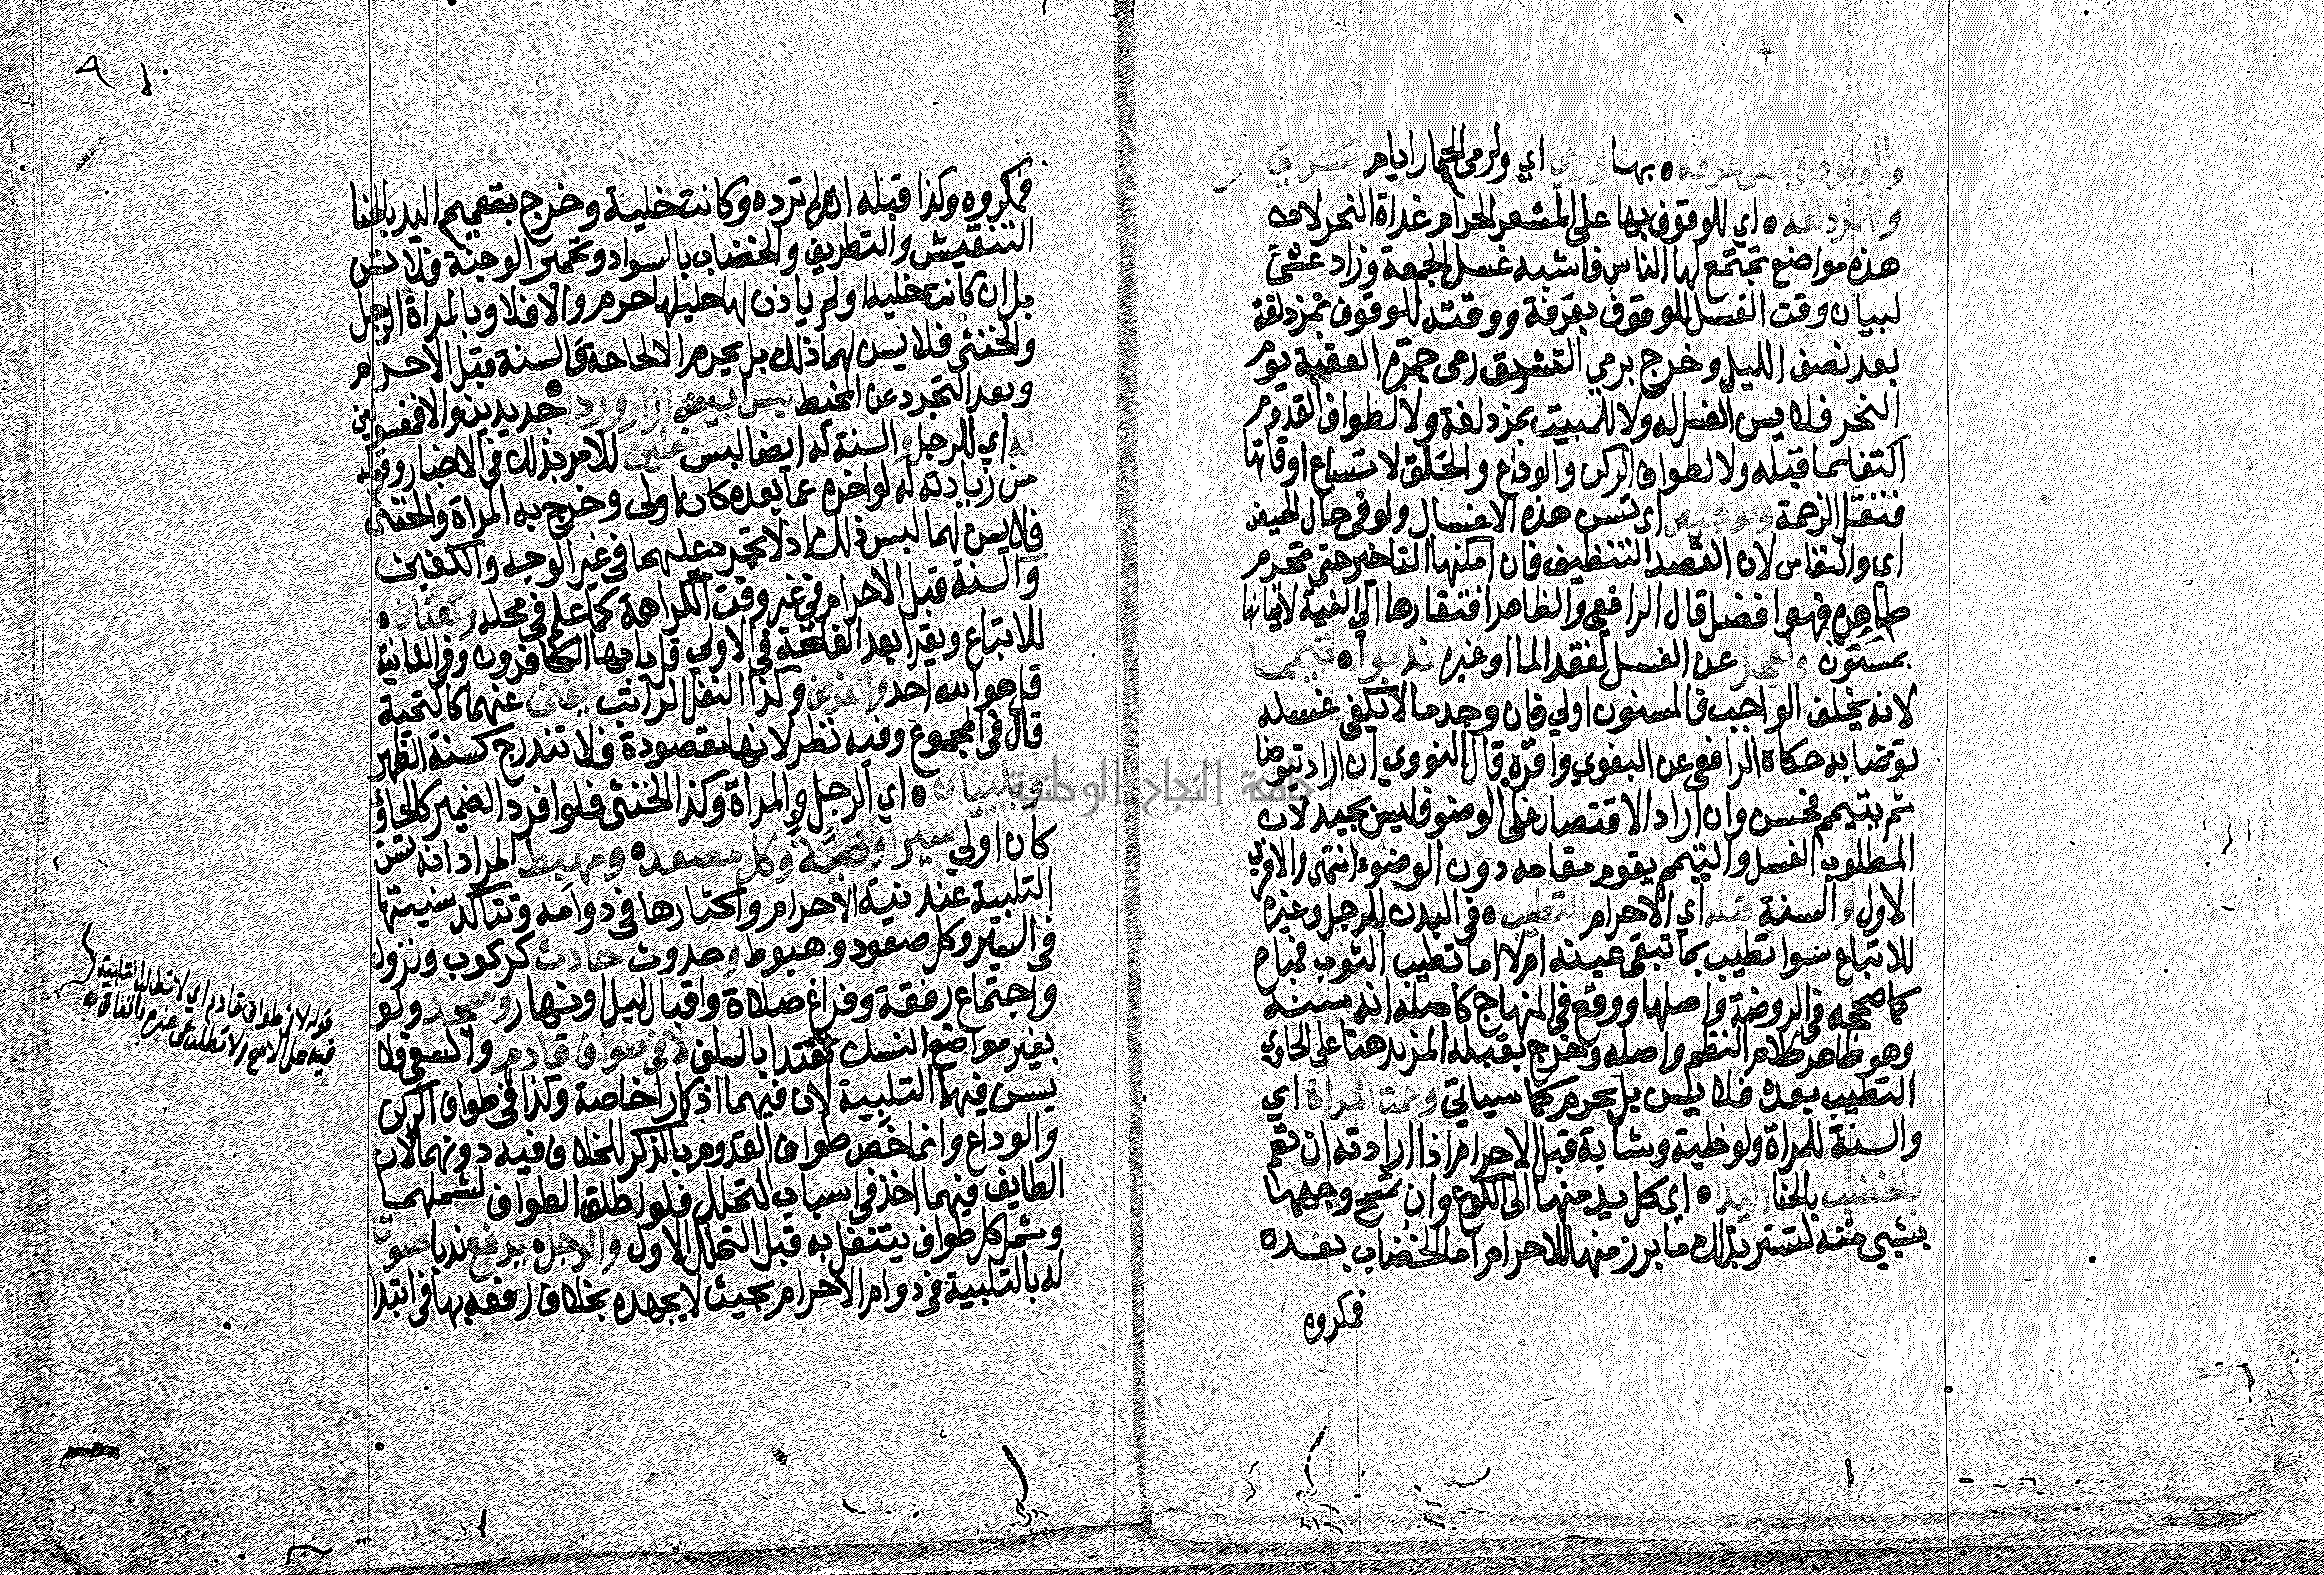 وللوقوف في عشي عرفه بها ورمي اي ولرمي الجمار ايام تشريق
ولمزدلفه اي للوقوف بها على المشعر الحرام غداة النحر لان
هذه مواضع تجتمع لها الناس فاشبه غسل الجمعة وزاد عشي
لبيان وقت الغسل للوقوف بعرفة ووقته للوقوف بمزدلفة
بعد نصف الليل وخرج برمي التشريق رمي جمرة العقبة يوم
النحر فلا يسن الغسل له ولا للمبيت بمزدلفة ولا لطواف القدوم
اكتفا بما قبله ولا لطواف الركن والوداع والحلق لاتساع اوقاتها
فتقل الزحمة ولو بحيض اي تسن هذه الاغسال ولو في حال الحيض
اي والنفاس لان القصد التنظيف فان امكنها التاخير حتى تحرم
طاهرة فهو افضل قال الرافعي والظاهر افتقارها الى النية لاتيانها
بمسنون ولعجز عن الغسل لفقد الما او غيره ندبوا تيمما
لانه يخلف الواجب فالمسنون اولي فان وجد ما لا يكفي غسله
توضا به حكاه الرافعي عن البغوي واقره قال النووي ان اراد يتوضا
ثم يتيمم فحسن وان اراد الاقتصار على الوضو فليس بجيد لان
المطلوب الغسل والتيمم يقوم مقامه دون الوضوء انتهى والاقرب
الاول والسنة قبله اي الاحرام التطيب في البدن للرجل وغيره
للاتباع سوا تطيب بما تبقى عينه ام لا اما تطيب الثوب فمباح
كما صححه في الروضة واصلها ووقع في المنهاج كاصله انه سنة
وهو ظاهر كلام النظم واصله وخرج بقبله المزيد هنا على الحاوي
التطيب بعده فلا يسن بل يحرم كما سياتي وعمت المراة اي
والسنة للمراة ولو خلية وشابة قبل الاحرام اذا ارادته ان تعم
بالخضب بالحنا اليدا اي كل يد منها الى الكوع وان تمسح وجهها
بشيي منه لتستر بذلك ما برز منها للاحرام اما الخضاب بعده
فمكروه
فمكروه وكذا قبله ان لم ترده وكانت خلية وخرج بتعميم اليد بالحنا
التنقيش والتطريف والخضاب بالسواد وتحمير الوجنة فلا تسن
بل ان كانت خليه او لم ياذن لها حليلها حرم والا فلا وبالمراة الرجل
والخنثى فلا يسن لهما ذلك بل يحرم الا لحاجة والسنة قبل الاحرام
وبعد التجرد عن المخيط لبس ابيض ازار وردا جديدين والا فمغسولين
له اي للرجل والسنة له ايضا لبس نعلين للامر بذلك في الاخبار وقوله
من زيادته له لو اخره عما بعده كان اولى وخرج به المراة والخنثى
فلا يسن لهما لبس ذلك اذ لا تجرد عليهما في غير الوجه والكفين
والسنة قبل الاحرام في غير وقت الكراهة كما علم في محله ركعتان
للاتباع ويقرا بعد الفاتحة في الاولي قل يا ايها الكافرون وفي الثانية
قل هو الله احد والفرض وكذا النفل الراتب يغني عنهما كالتحية
قال في المجموع وفيه نظر لانها مقصودة فلا تندرج كسنة الظهر
ويلبيان اي الرجل والمراة وكذا الخنثى فلو افرد الضمير كالحاوي
كان اولي سيرا وكل مصعد ومهبط المراد انه تسن
التلبية عند نية الاحرام واكثارها في دوامه وتتاكد سنيتها
في السير وكل صعود وهبوط وحدوث حادث كركوب ونزول
واجتماع رفقة وفراغ صلاة واقبال ليل او نهار ومسجد ولو
بغير مواضع النسك اقتدا بالسلف لا في طواف قادم والسعي فلا
يسن فيهما التلبية لان فيهما اذكارا خاصة وكذا في طواف الركن
والوداع وانما خص طواف القدوم بالذكر للخلاف فيه دونهما لان
الطايف فيهما اخذ في اسباب التحلل فلو اطلق الطواف لشملهما
وشمل كل طواف يتنفل به قبل التحلل الاول والرجل يرفع ندبا صوتا
له بالتلبية في دوام الاحرام بحيث لا يجهده بخلاف رفعه بها في ابتدا
قوله لا في طواف قادم اي لا تطلب التلبية
فيه على الاصح ولا تطلب في غيره باتفاق
جامعة النجاح الوطنية